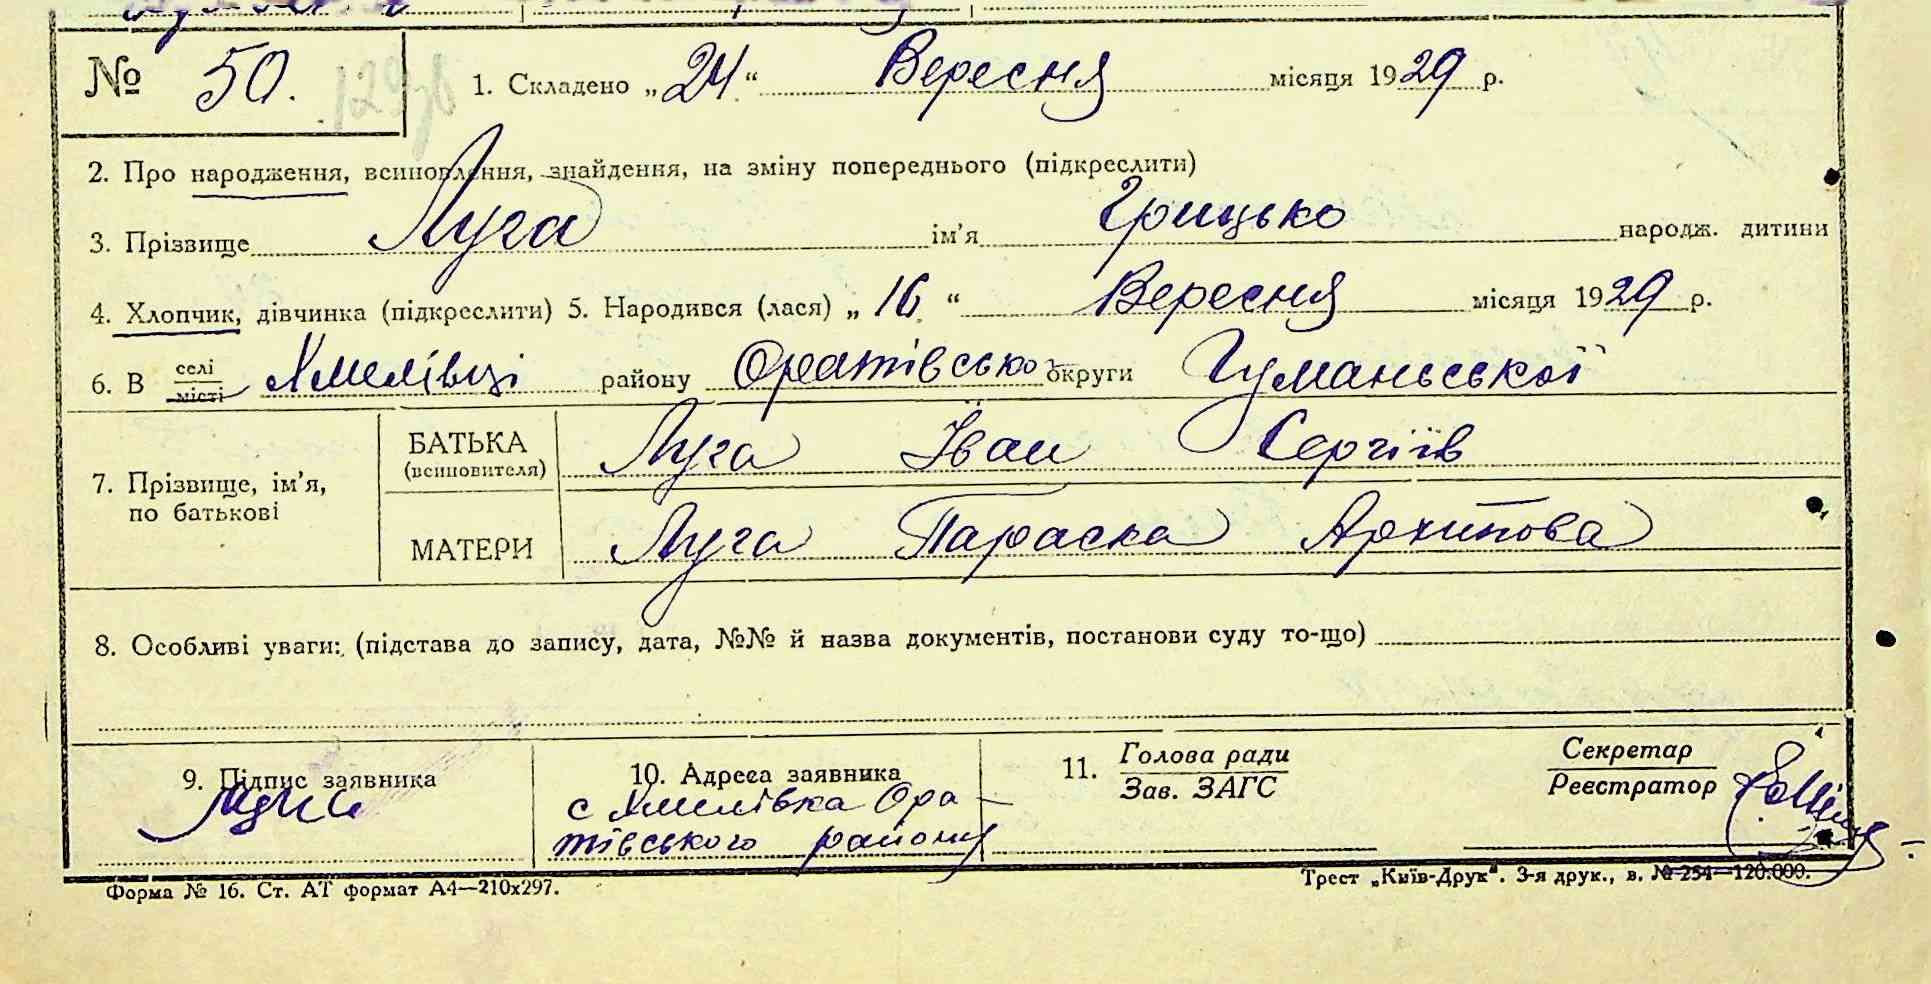 № 50.
1. Складено „24“ Вересня місяця 1929 р.
2. Про народження, всиновлення, знайдення, на зміну попереднього (підкреслити)
3. Прізвище Луга ім'я Грицько народж. дитини
4. Хлопчик, дівчинка (підкреслити) 5. Народився (лася) „16“ Вересня місяця 1929 р.
6. В селі місті Хмелівці району Оратівсько округи Гуманьської
7. Прізвище, ім'я, по батькові
БАТЬКА (всиновителя) Луга Іван Сергіїв
МАТЕРИ Луга Параска Архипова
8. Особливі уваги: (підстава до запису, дата, №№ й назва документів, постанови суду то-що)
9. Підпис заявника
10. Адреса заявника
с Хмелівка Ора-
тівського району
11. Голова ради
Зав. ЗАГС
Секретар
Реєстратор
Форма № 16. Ст. АТ формат А4—210х297.
Трест „Київ-Друк“. 3-я друк., в. № 254—120.000.